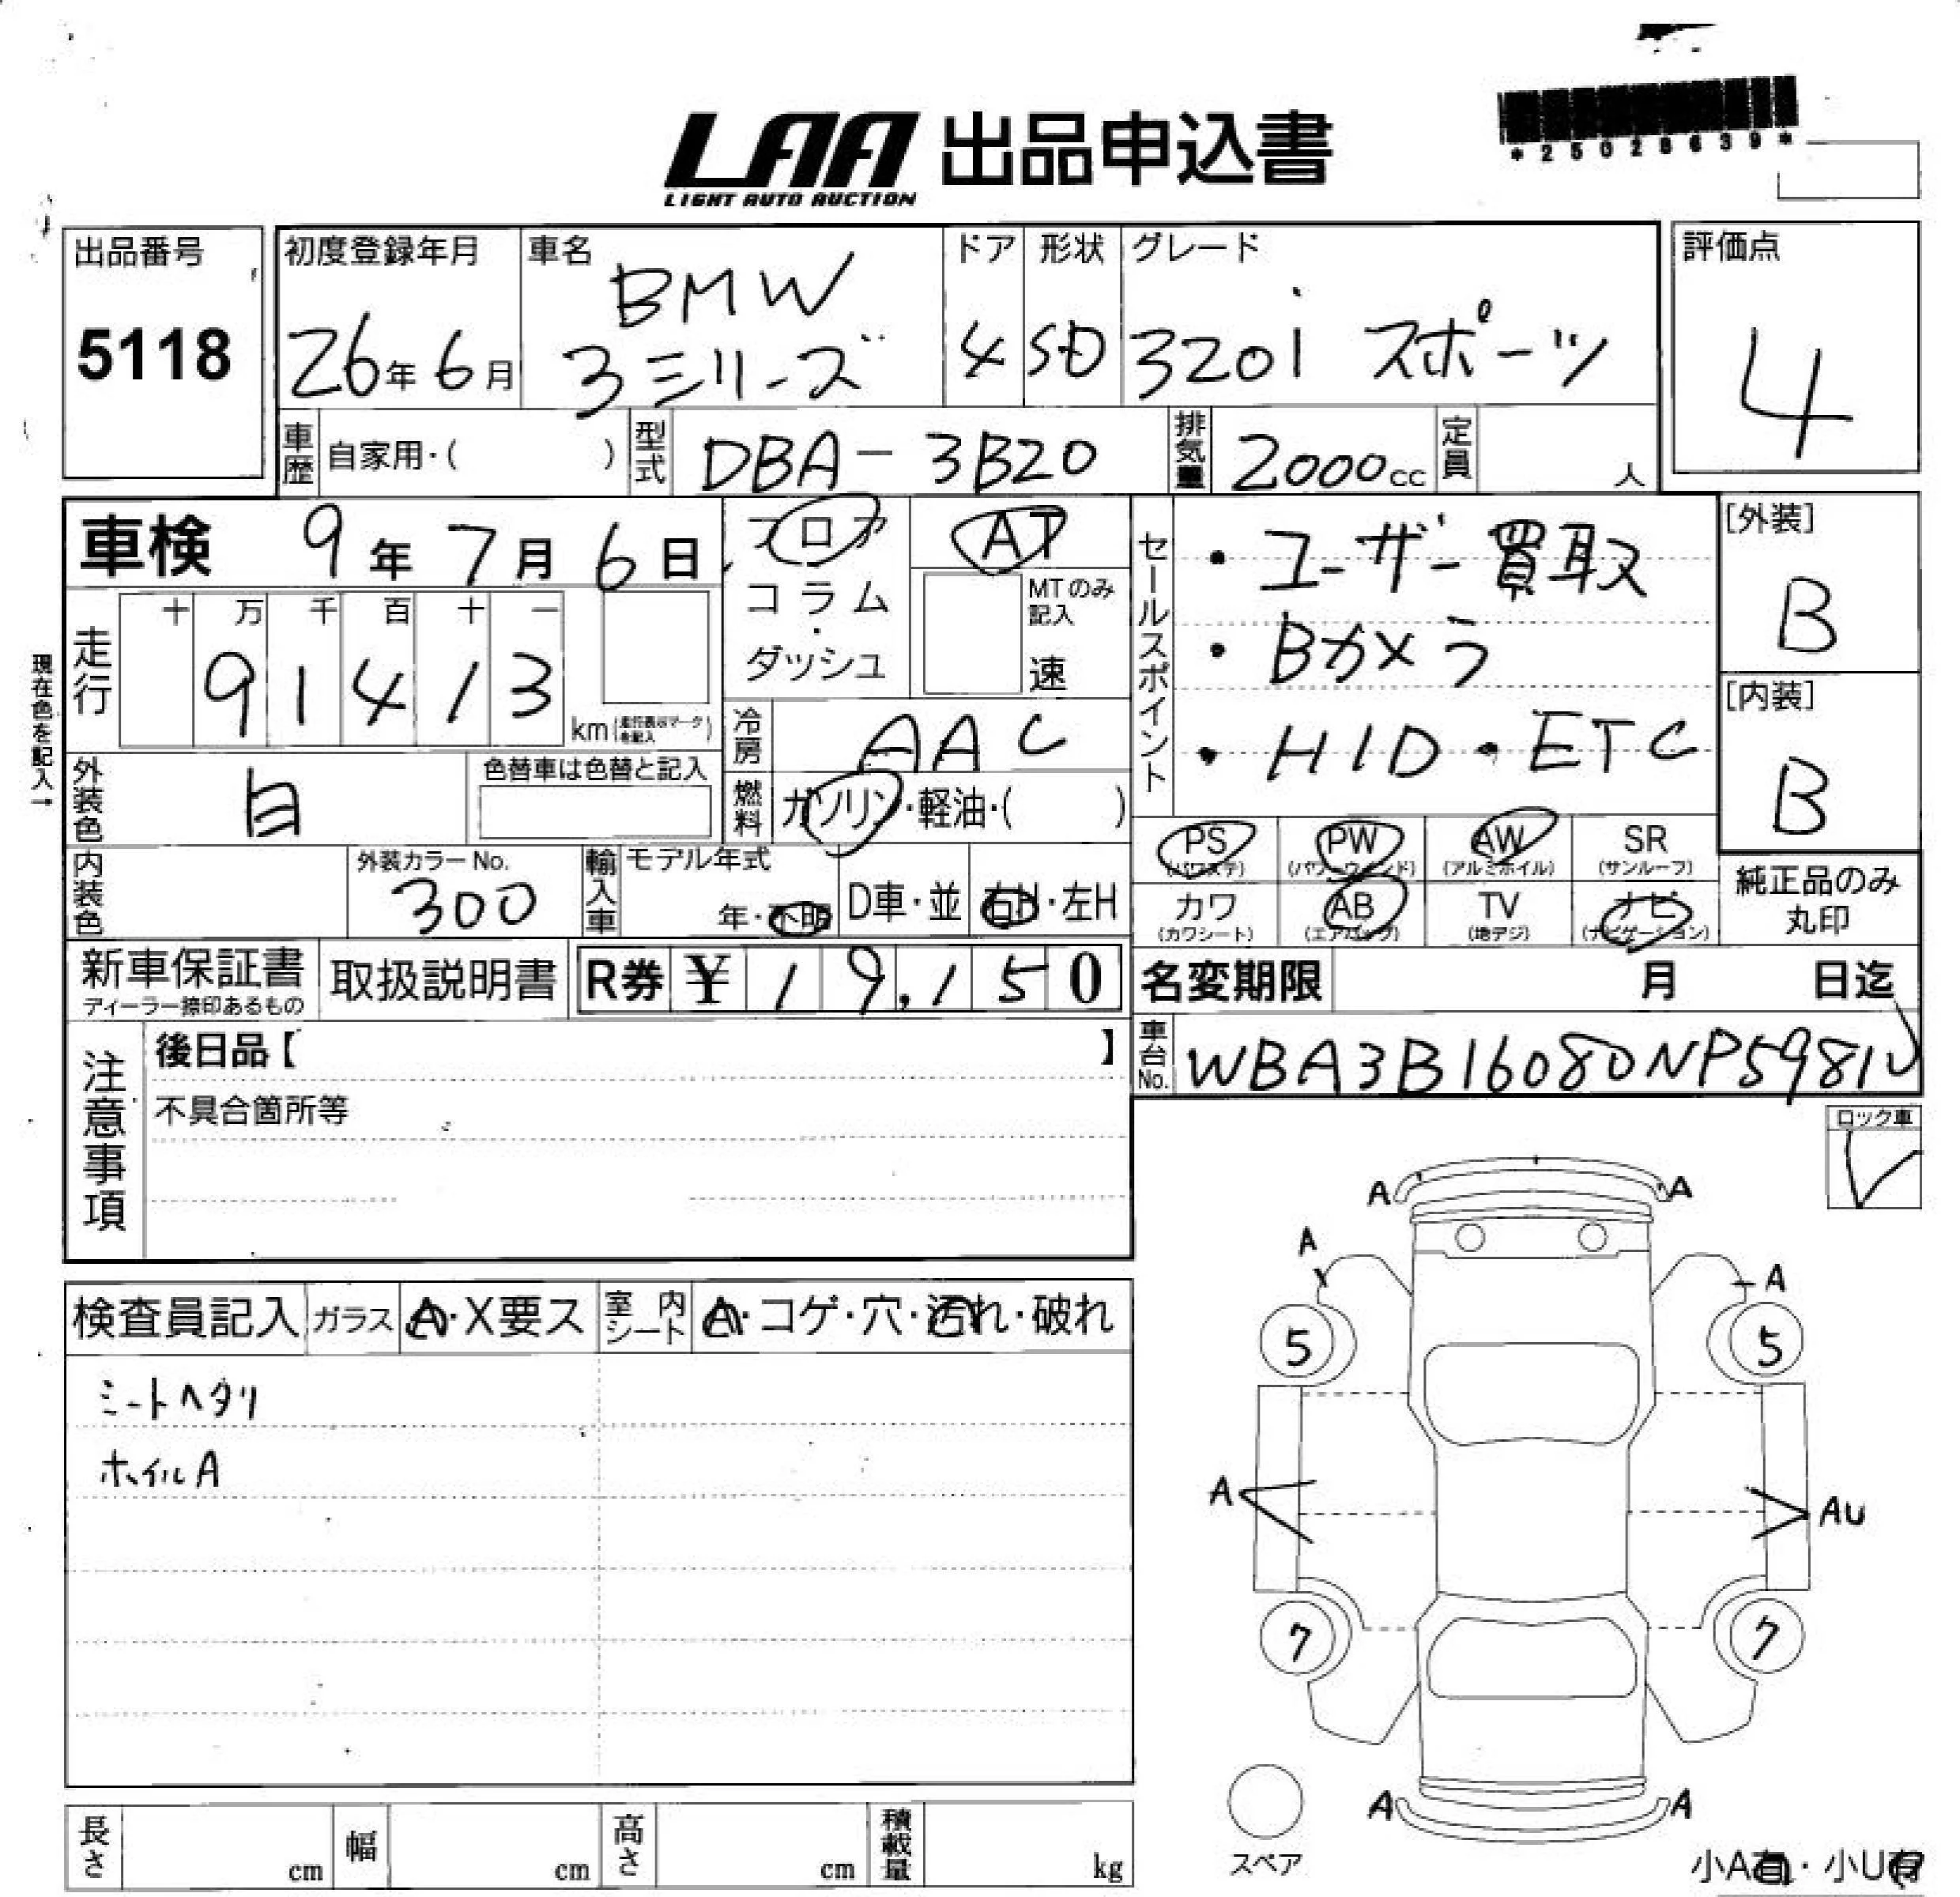 LAA 出品申込書
LIGHT AUTO AUCTION
*25028639*
出品番号
5118
初度登録年月
26年6月
車名
BMW
3シリーズ
ドア
4
形状
SD
グレード
320i スポーツ
評価点
4
車歴 自家用・( )
型式 DBA-3B20
排気量 2000cc
定員 人
車検 9年7月6日
フロア
コラム
・
ダッシュ
AT
MTのみ
記入
速
セールスポイント
・ユーザー買取
・Bカメラ
・HID・ETC
[外装]
B
[内装]
B
現在色を記入→
走行
十 万 千 百 十 一
9 1 4 1 3
km
冷房 AAC
外装色 白
色替車は色替と記入
燃料 ガソリン・軽油・( )
PS (パワステ)
PW (パワーウインド)
AW (アルミホイル)
SR (サンルーフ)
カワ (カワシート)
AB (エアバッグ)
TV (地デジ)
ナビ (ナビゲーション)
純正品のみ
丸印
内装色
外装カラーNo.
300
輸入車
モデル年式
年・不明
D車・並
右H・左H
新車保証書
ディーラー捺印あるもの
取扱説明書
R券 ¥19,150
名変期限 月 日迄
車台No. WBA3B16080NP5981
注意事項
後日品【 】
不具合箇所等
ロック車
検査員記入 ガラス A・X要ス 室内シート A・コゲ・穴・汚れ・破れ
シートヘタリ
ホイルA
A A
A A
5 5
A AU
7 7
A A
スペア
小A有・小U有
長さ cm
幅 cm
高さ cm
積載量 kg